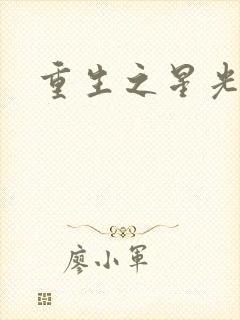 重生之星光
廖小军